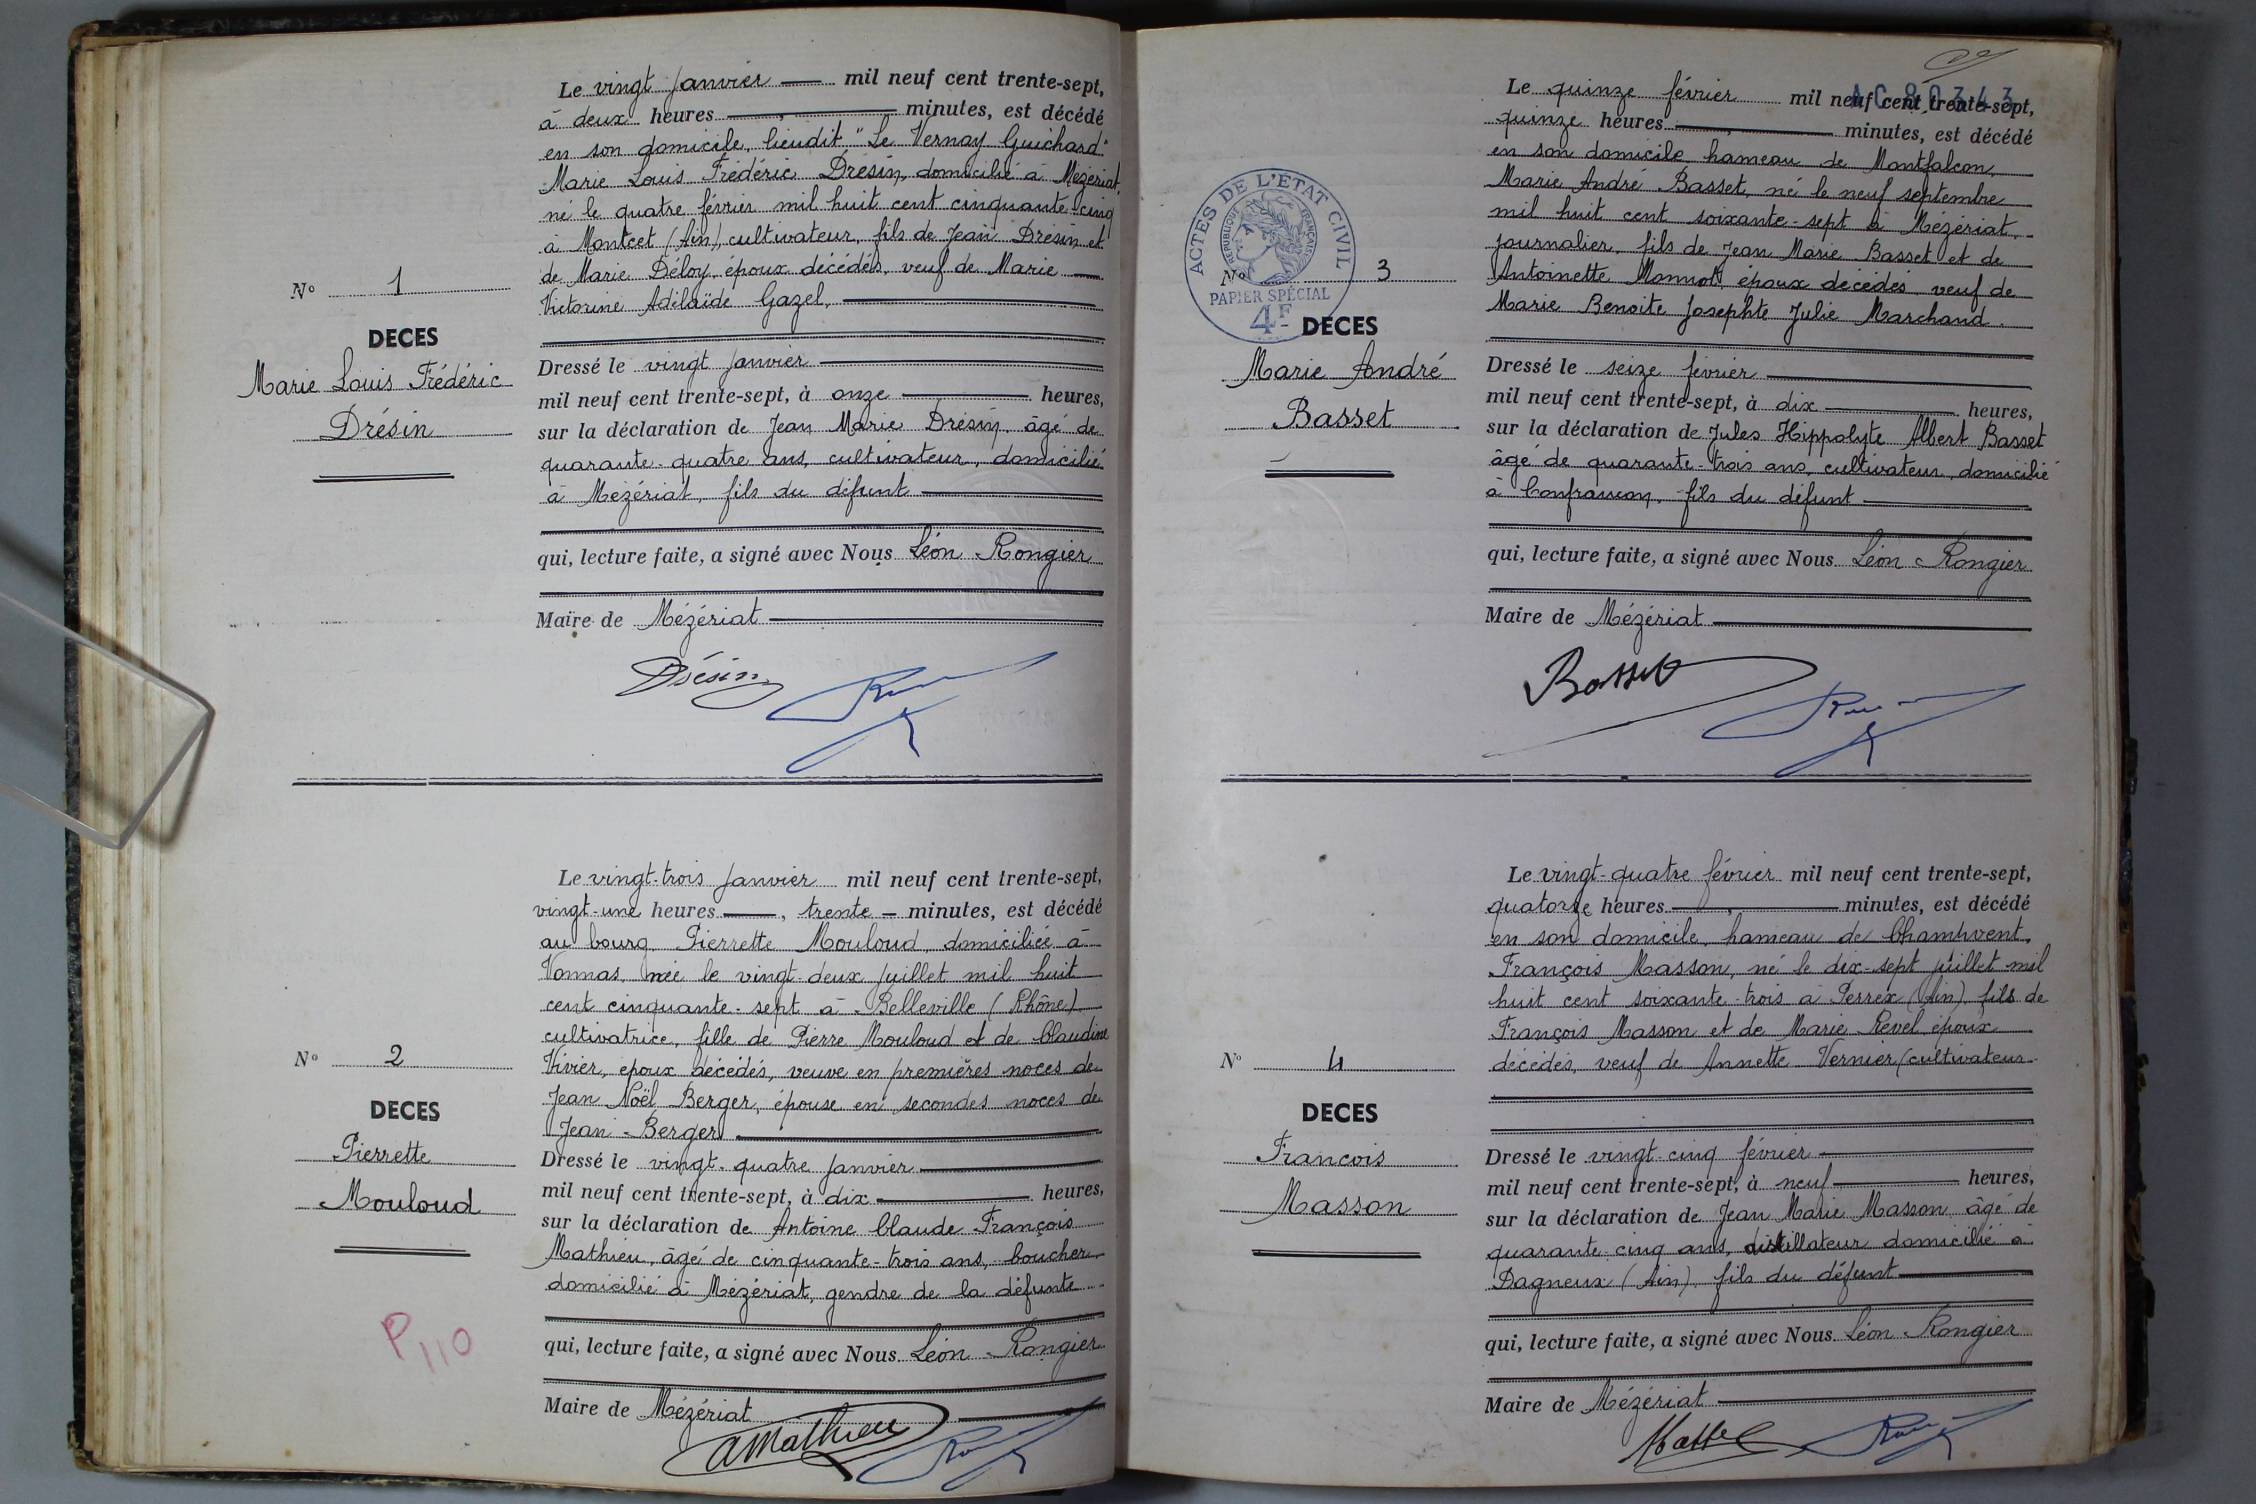 Le vingt janvier mil neuf cent trente-sept,
à deux heures , minutes, est décédé
en son domicile, lieudit "Le Vernay Guichard"
Marie Louis Frédéric Drésin, domicilié à Mézériat,
né le quatre février mil huit cent cinquante-cinq
à Montcet (Ain), cultivateur, fils de Jean Drésin et
de Marie Déloy, époux décédés, veuf de Marie
Victorine Adélaïde Gazel,
N° 1
DECES
Marie Louis Frédéric
Drésin
Dressé le vingt janvier
mil neuf cent trente-sept, à onze heures,
sur la déclaration de Jean Marie Drésin, âgé de
quarante-quatre ans, cultivateur, domicilié
à Mézériat, fils du défunt
qui, lecture faite, a signé avec Nous Léon Rongier
Maire de Mézériat
Drésin
Le vingt-trois janvier mil neuf cent trente-sept,
vingt-une heures , trente minutes, est décédé
au bourg Pierrette Mouloud, domiciliée à
Vonnas, née le vingt-deux juillet mil huit
cent cinquante-sept à Belleville (Rhône)
cultivatrice, fille de Pierre Mouloud et de Claudine
Vivier, époux décédés, veuve en premières noces de
Jean Noël Berger, épouse en secondes noces de
Jean Berger
N° 2
DECES
Pierrette
Mouloud
P110
Dressé le vingt-quatre janvier
mil neuf cent trente-sept, à dix heures,
sur la déclaration de Antoine Claude François
Mathieu, âgé de cinquante-trois ans, boucher
domicilié à Mézériat, gendre de la défunte
qui, lecture faite, a signé avec Nous Léon Rongier
Maire de Mézériat
AMathieu
AC80343
Le quinze février mil neuf cent trente-sept,
quinze heures , minutes, est décédé
en son domicile hameau de Montfalcon,
Marie André Basset, né le neuf septembre
mil huit cent soixante-sept à Mézériat,
journalier, fils de Jean Marie Basset et de
Antoinette Monnot, époux décédés, veuf de
Marie Benoite Josephte Julie Marchand.
ACTES DE L'ETAT CIVIL
REPUBLIQUE FRANÇAISE
PAPIER SPÉCIAL
4F
N° 3
DECES
Marie André
Basset
Dressé le seize février
mil neuf cent trente-sept, à dix heures,
sur la déclaration de Jules Hippolyte Albert Basset
âgé de quarante-trois ans, cultivateur, domicilié
à Confrançon, fils du défunt
qui, lecture faite, a signé avec Nous Léon Rongier
Maire de Mézériat
Basset
Le vingt-quatre février mil neuf cent trente-sept,
quatorze heures , minutes, est décédé
en son domicile, hameau de Chamhvent,
François Masson, né le dix-sept juillet mil
huit cent soixante-trois à Perrex (Ain), fils de
François Masson et de Marie Revel époux
décédés, veuf de Annette Vernier, cultivateur
N° 4
DECES
Francois
Masson
Dressé le vingt-cinq février
mil neuf cent trente-sept, à neuf heures,
sur la déclaration de Jean Marie Masson, âgé de
quarante-cinq ans, distillateur domicilié à
Dagneux (Ain), fils du défunt
qui, lecture faite, a signé avec Nous Léon Rongier
Maire de Mézériat